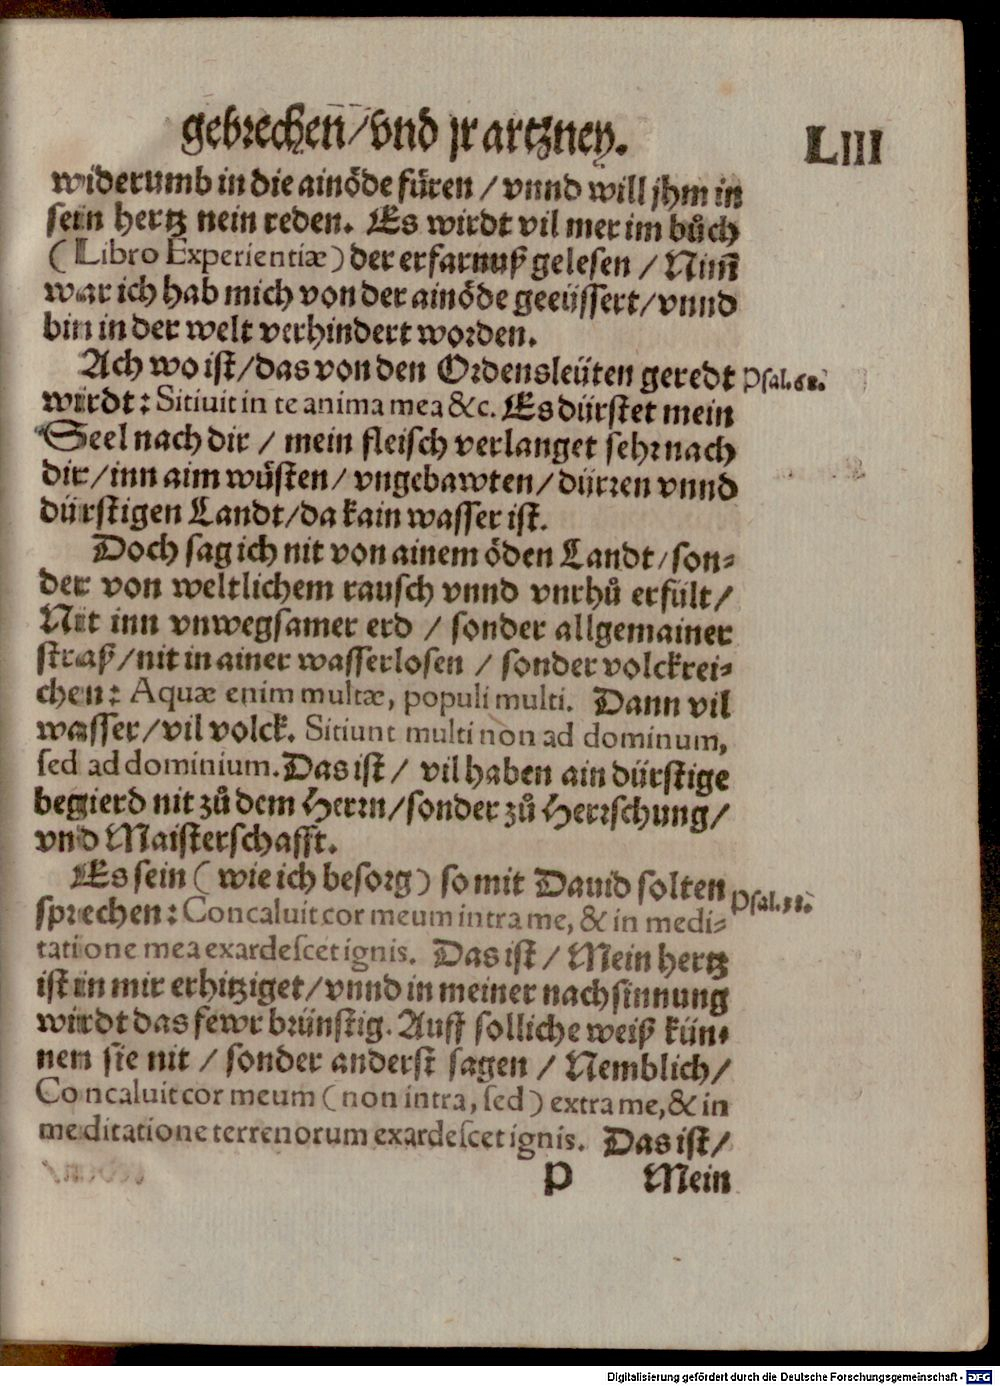 gebrechen/vnd jr artzney. LIII
widerumb in die ainöde füren / vnnd will jhm in
sein hertz nein reden. Es wirdt vil mer im bůch
(Libro Experientiæ) der erfarnuß gelesen / Nim̃
war ich hab mich von der ainöde geeüssert/vnnd
bin in der welt verhindert worden.
Ach wo ist/das von den Ordensleüten geredt Psal.62.
wirdt: Sitiuit in te anima mea &c. Es dürstet mein
Seel nach dir / mein fleisch verlanget sehr nach
dir/inn aim wüsten/ vngebawten/ dürren vnnd
dürstigen Landt/da kain wasser ist.
Doch sag ich nit von ainem öden Landt/son-
der von weltlichem rausch vnnd vnrhů erfült/
Nit inn vnwegsamer erd / sonder allgemainer
straß/nit in ainer wasserlosen / sonder volckrei-
chen: Aquæ enim multæ, populi multi. Dann vil
wasser/vil volck. Sitiunt multi non ad dominum,
sed ad dominium. Das ist/ vil haben ain dürstige
begierd nit zů dem Herrn/sonder zů Herrschung/
vnd Maisterschafft.
Es sein ( wie ich besorg) so mit Dauid solten Psal.38.
sprechen: Concaluit cor meum intra me, & in medi-
tatione mea exardescet ignis. Das ist/ Mein hertz
ist in mir erhitziget/vnnd in meiner nachsinnung
wirdt das fewr brünstig. Auff solliche weiß kün-
nen sie nit / sonder anderst sagen / Nemblich/
Concaluit cor meum (non intra, sed) extra me, & in
meditatione terrenorum exardescet ignis. Das ist/
P Mein
Digitalisierung gefördert durch die Deutsche Forschungsgemeinschaft - DFG